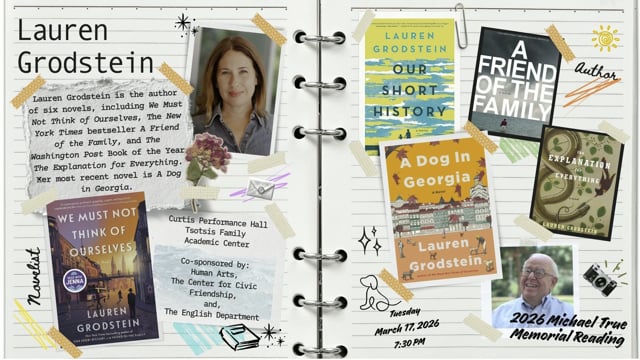 Lauren
Grodstein
Lauren Grodstein is the author
of six novels, including We Must
Not Think of Ourselves, The New
York Times bestseller A Friend
of the Family, and The
Washington Post Book of the Year
The Explanation for Everything.
Her most recent novel is A Dog
in Georgia.
WE MUST NOT
THINK OF
OURSELVES
READ WITH
JENNA
LAUREN
GRODSTEIN
Novelist
Curtis Performance Hall
Tsotsis Family
Academic Center
Co-sponsored by:
Human Arts,
The Center for Civic
Friendship,
and,
The English Department
LAUREN
GRODSTEIN
OUR
SHORT
HISTORY
A NOVEL
A
FRIEND
OF THE
FAMILY
Author
A Dog In
Georgia
A Novel
Lauren
Grodstein
THE
EXPLANATION
FOR
EVERYTHING
LAUREN GRODSTEIN
Tuesday
March 17, 2026
7:30 PM
2026 Michael True
Memorial Reading